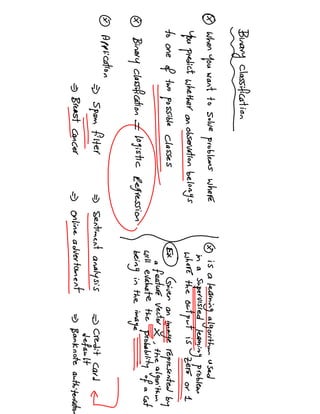 Binary classification
ⓧ When you want to solve problems where
you predict whether an observation belongs
to one of two possible classes
ⓧ Binary classification = logistic Regression
ⓧ Application
⇒ Spam filter
⇒ Sentiment analysis
⇒ Credit Card
default
⇒ Breast Cancer
⇒ online advertisement
⇒ Banknote authentication
ⓧ is a learning algorithm used
in a supervised learning problem
where the output is zero or 1
Ex Given an image represented by
a feature vector X the algorithm
will evaluate the probability of a cat
being in the image